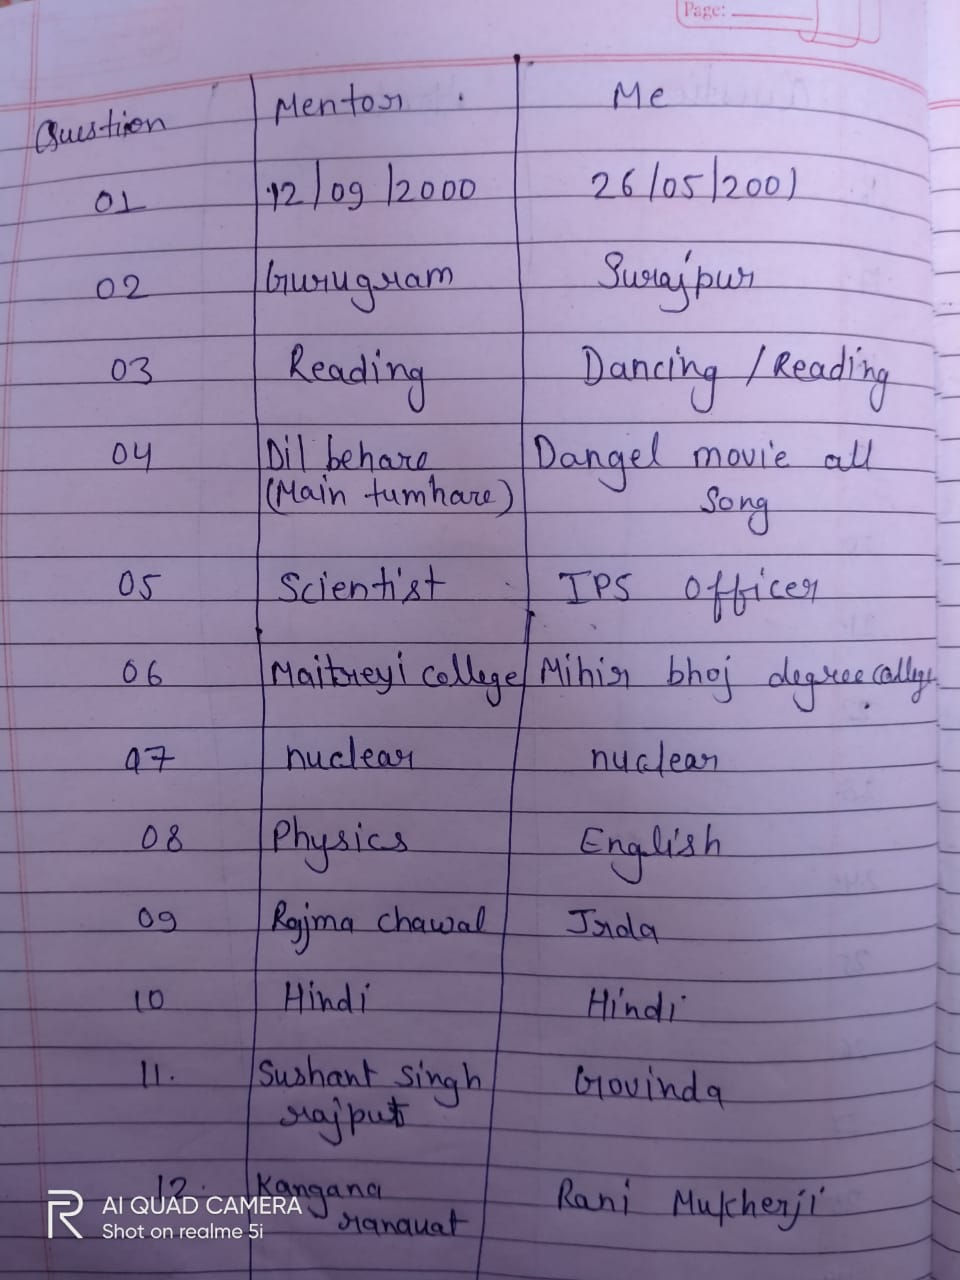 Page:
Question Mentor Me
01 12/09/2000 26/05/2001
02 Gurugram Surajpur
03 Reading Dancing / Reading
04 Dil behare Dangel movie all
(Main tumhare) Song
05 Scientist IPS officer
06 Maitreyi college Mihir bhoj degree college
07 nuclear nuclear
08 Physics English
09 Rajma chawal
10 Hindi Hindi
11. Sushant Singh Govinda
rajput
12. Kangana Rani Mukherji
ranauat
R AI QUAD CAMERA
Shot on realme 5i